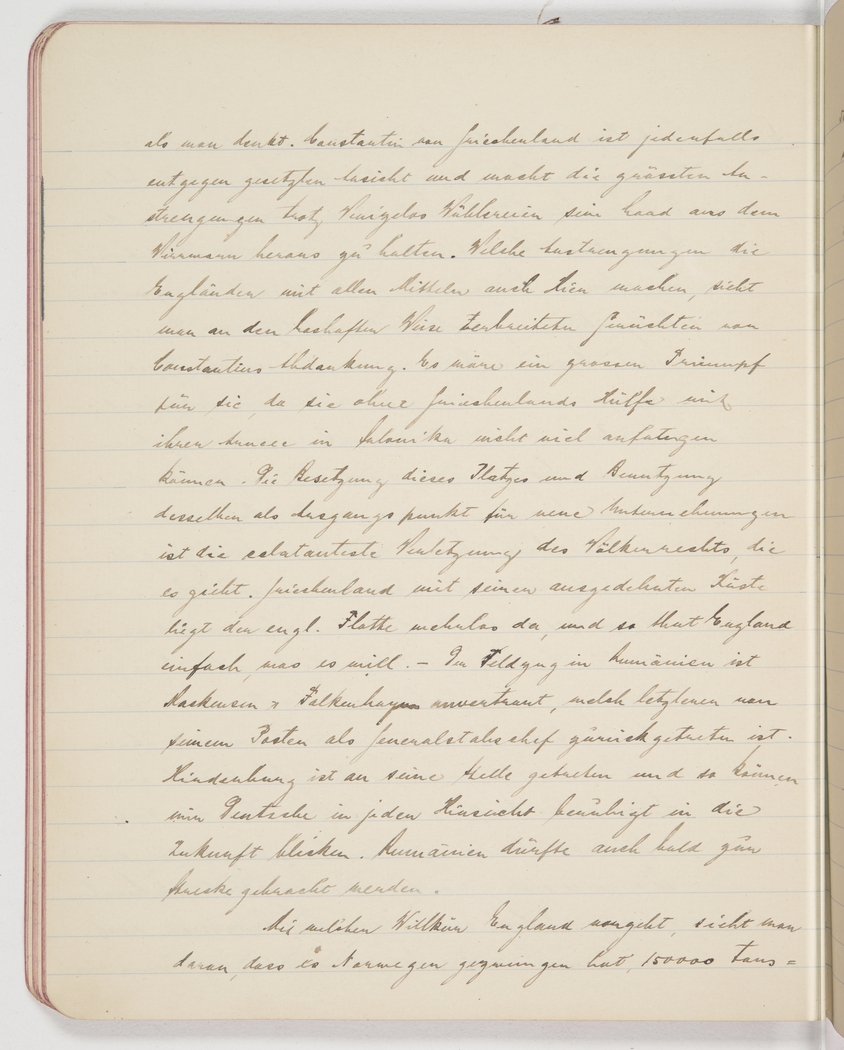 als man denkt. Constantin von Griechenland ist jedenfalls
entgegen gesetzten Ansicht und macht die grössten An-
strengungen trotz Venizelos Wühlereien sein Land aus dem
Wirrwarr heraus zu halten. Welche Anstrengungen die
Engländer mit allen Mitteln auch hier machen, sieht
man an den boshaften Weise verbreiteten Gerüchten von
Constantins Abdankung. Es wäre ein grosser Triumpf
für sie, da sie ohne Griechenlands Hülfe mit
ihrer Armee in Salonika nicht viel anfangen
können. Die Besetzung dieses Platzes und Benutzung
desselben als Ausgangspunkt für neue Unternehmungen
ist die eclatanteste Verletzung des Völkerrechts, die
es giebt. Griechenland mit seiner ausgedehnten Küste
liegt der engl. Flotte wehrlos da, und so thut England
einfach was es will. – Der Feldzug in Rumänien ist
Mackensen & Falkenhayn anvertraut, welch letzterer von
seinem Posten als Generalstabschef zurückgetreten ist.
Hindenburg ist an seine Stelle getreten und so können
wir Deutsche in jeder Hinsicht beruhigt in die
Zukunft blicken. Rumänien dürfte auch bald zur
Strecke gebracht werden.
Mit welcher Willkür England vorgeht, sieht man
daran, dass es Norwegen gezwungen hat, 150000 Tons=